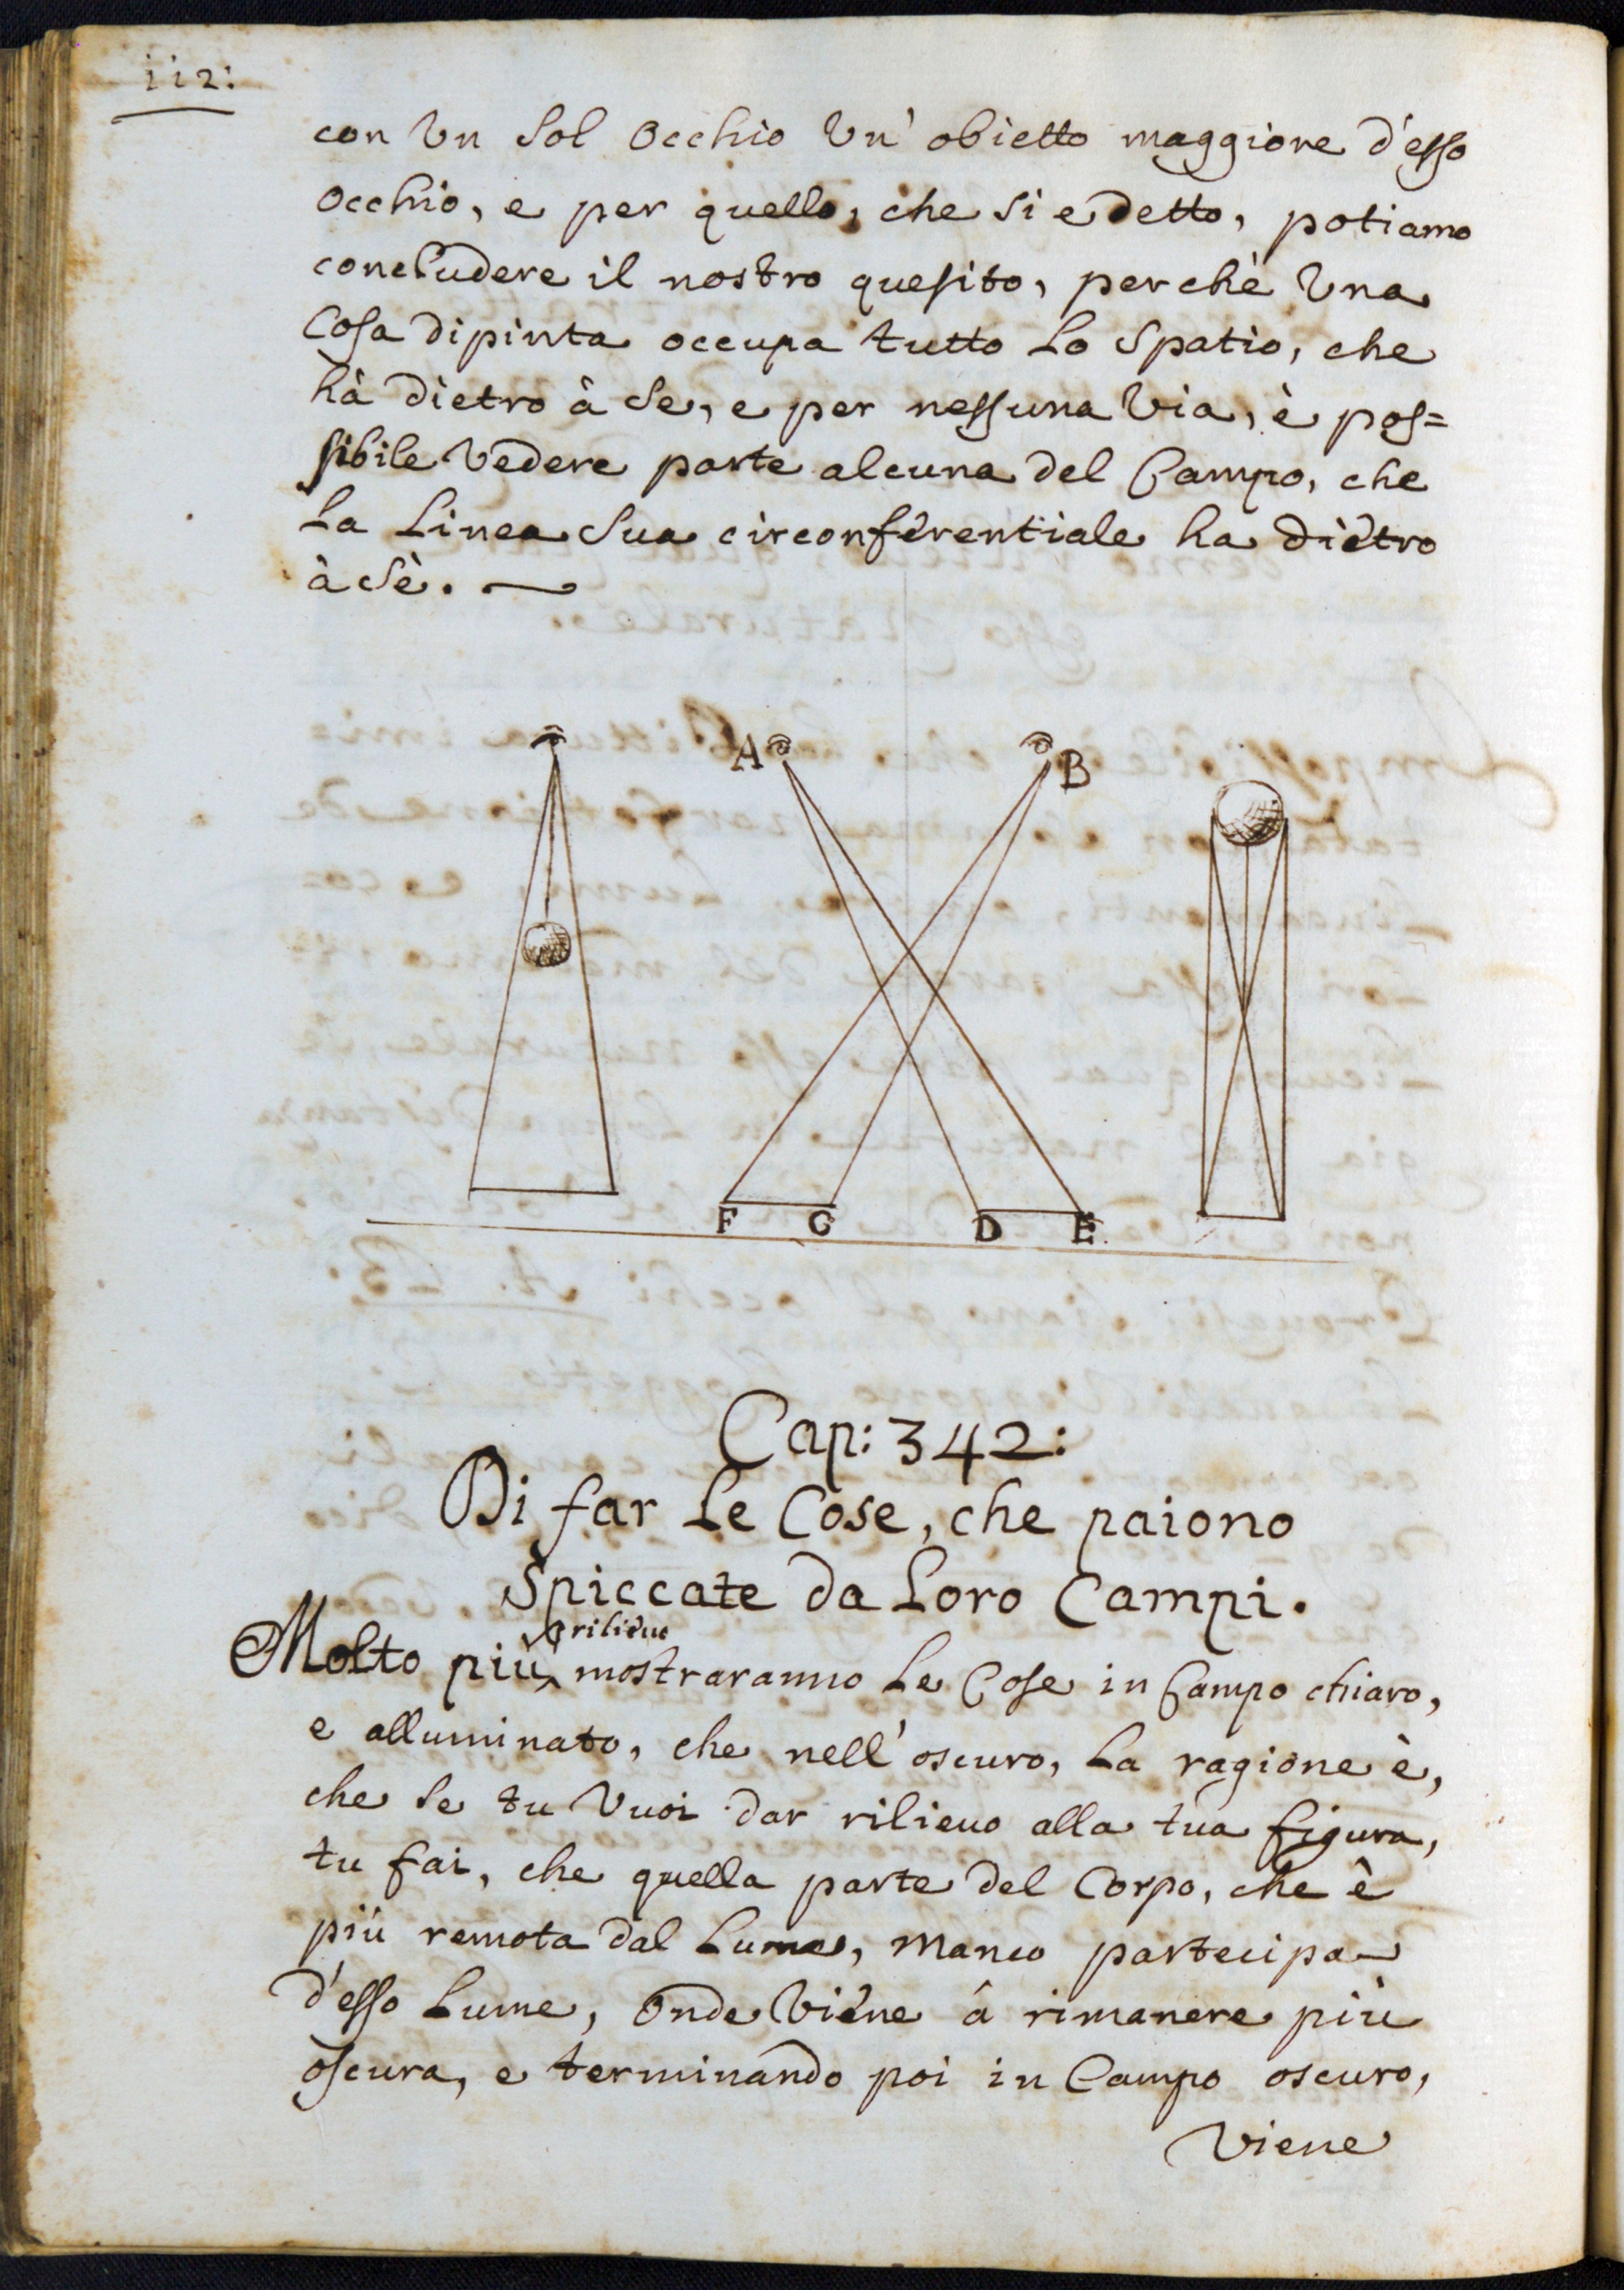 112:
con Vn sol occhio Vn' obietto maggiore d'esso
occhio, e per quello, che si e detto, potiamo
concludere il nostro quesito, perchè Vna
Cosa dipinta occupa tutto lo spatio, che
hà dietro à se, e per nessuna Via, è pos=
sibile Vedere parte alcuna del Campo, che
la linea sua circonferentiale ha dietro
à sè.
A B
F C D E
Cap: 342:
Di far le Cose, che paiono
Spiccate da loro Campi.
rilieuo
Molto più mostraranno le Cose in Campo chiaro,
e alluminato, che nell'oscuro, la ragione è,
che se tu Vuoi dar rilieuo alla tua figura,
tu fai, che quella parte del Corpo, che è
più remota dal lume, manco partecipa
d'esso lume, onde Viene à rimanere più
oscura, e terminando poi in Campo oscuro,
Viene